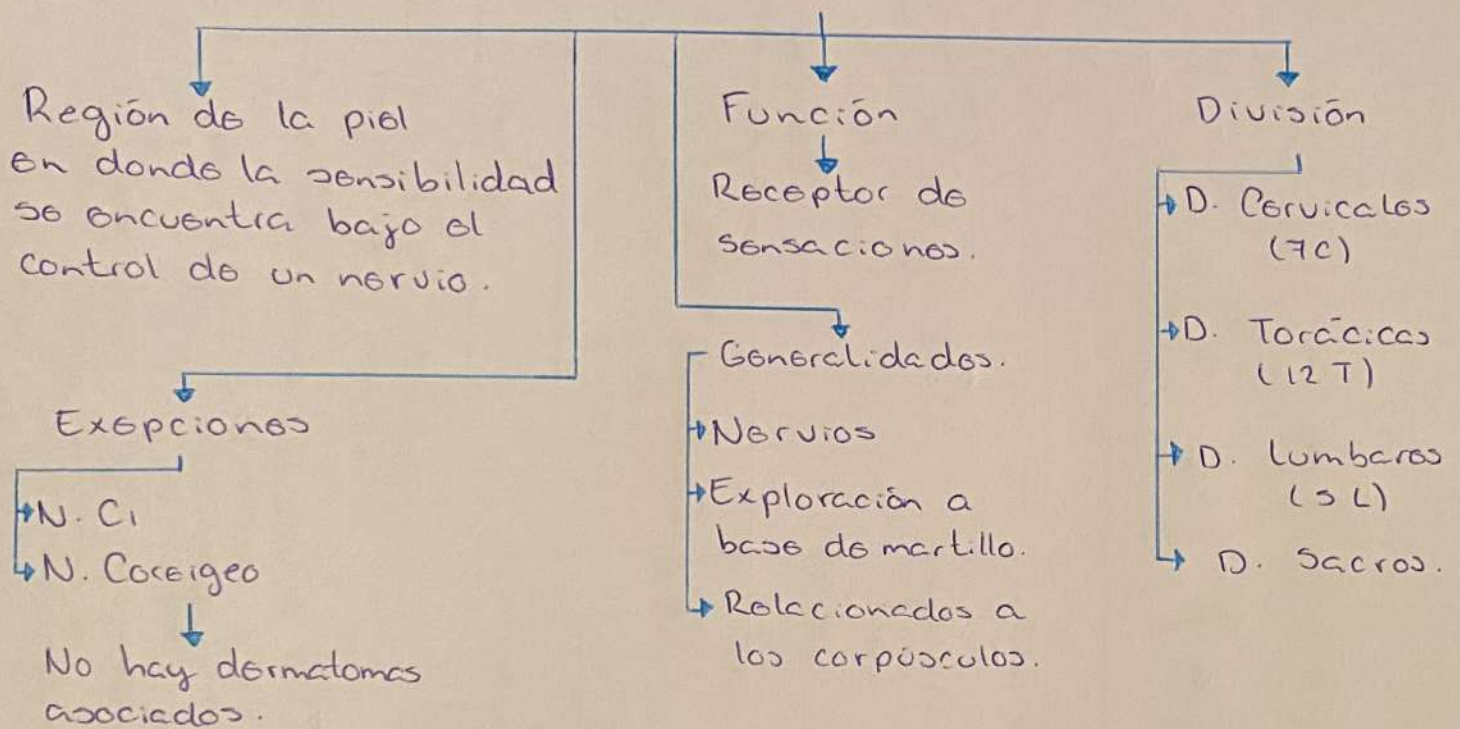 Región de la piel
en donde la sensibilidad
se encuentra bajo el
control de un nervio.
Exepciones
N. C1
N. Coccigeo
No hay dermatomas
asociados.
Función
Receptor de
sensaciones.
Generalidades.
Nervios
Exploración a
base de martillo.
Relacionados a
los corpúsculos.
División
D. Cervicales
(7C)
D. Torácicas
(12 T)
D. Lumbares
(5 L)
D. Sacros.